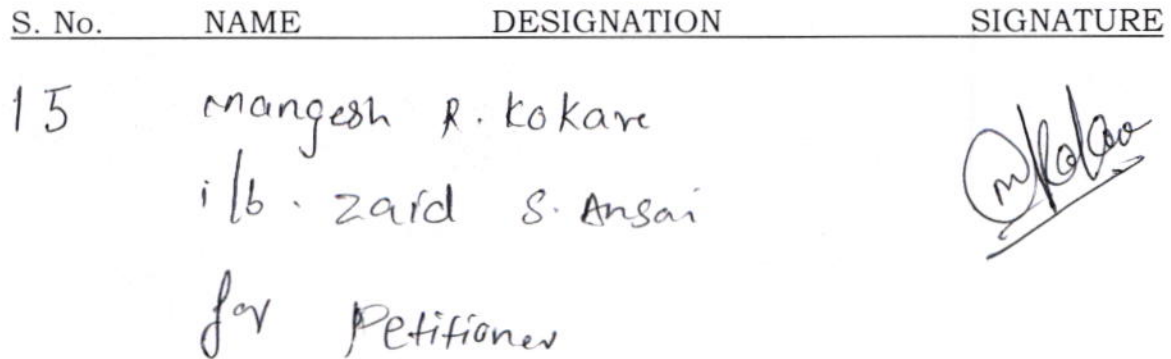 S. No. NAME DESIGNATION SIGNATURE
15 Mangesh R. Kokare
i/b. Zaid S. Ansari
for Petitioner